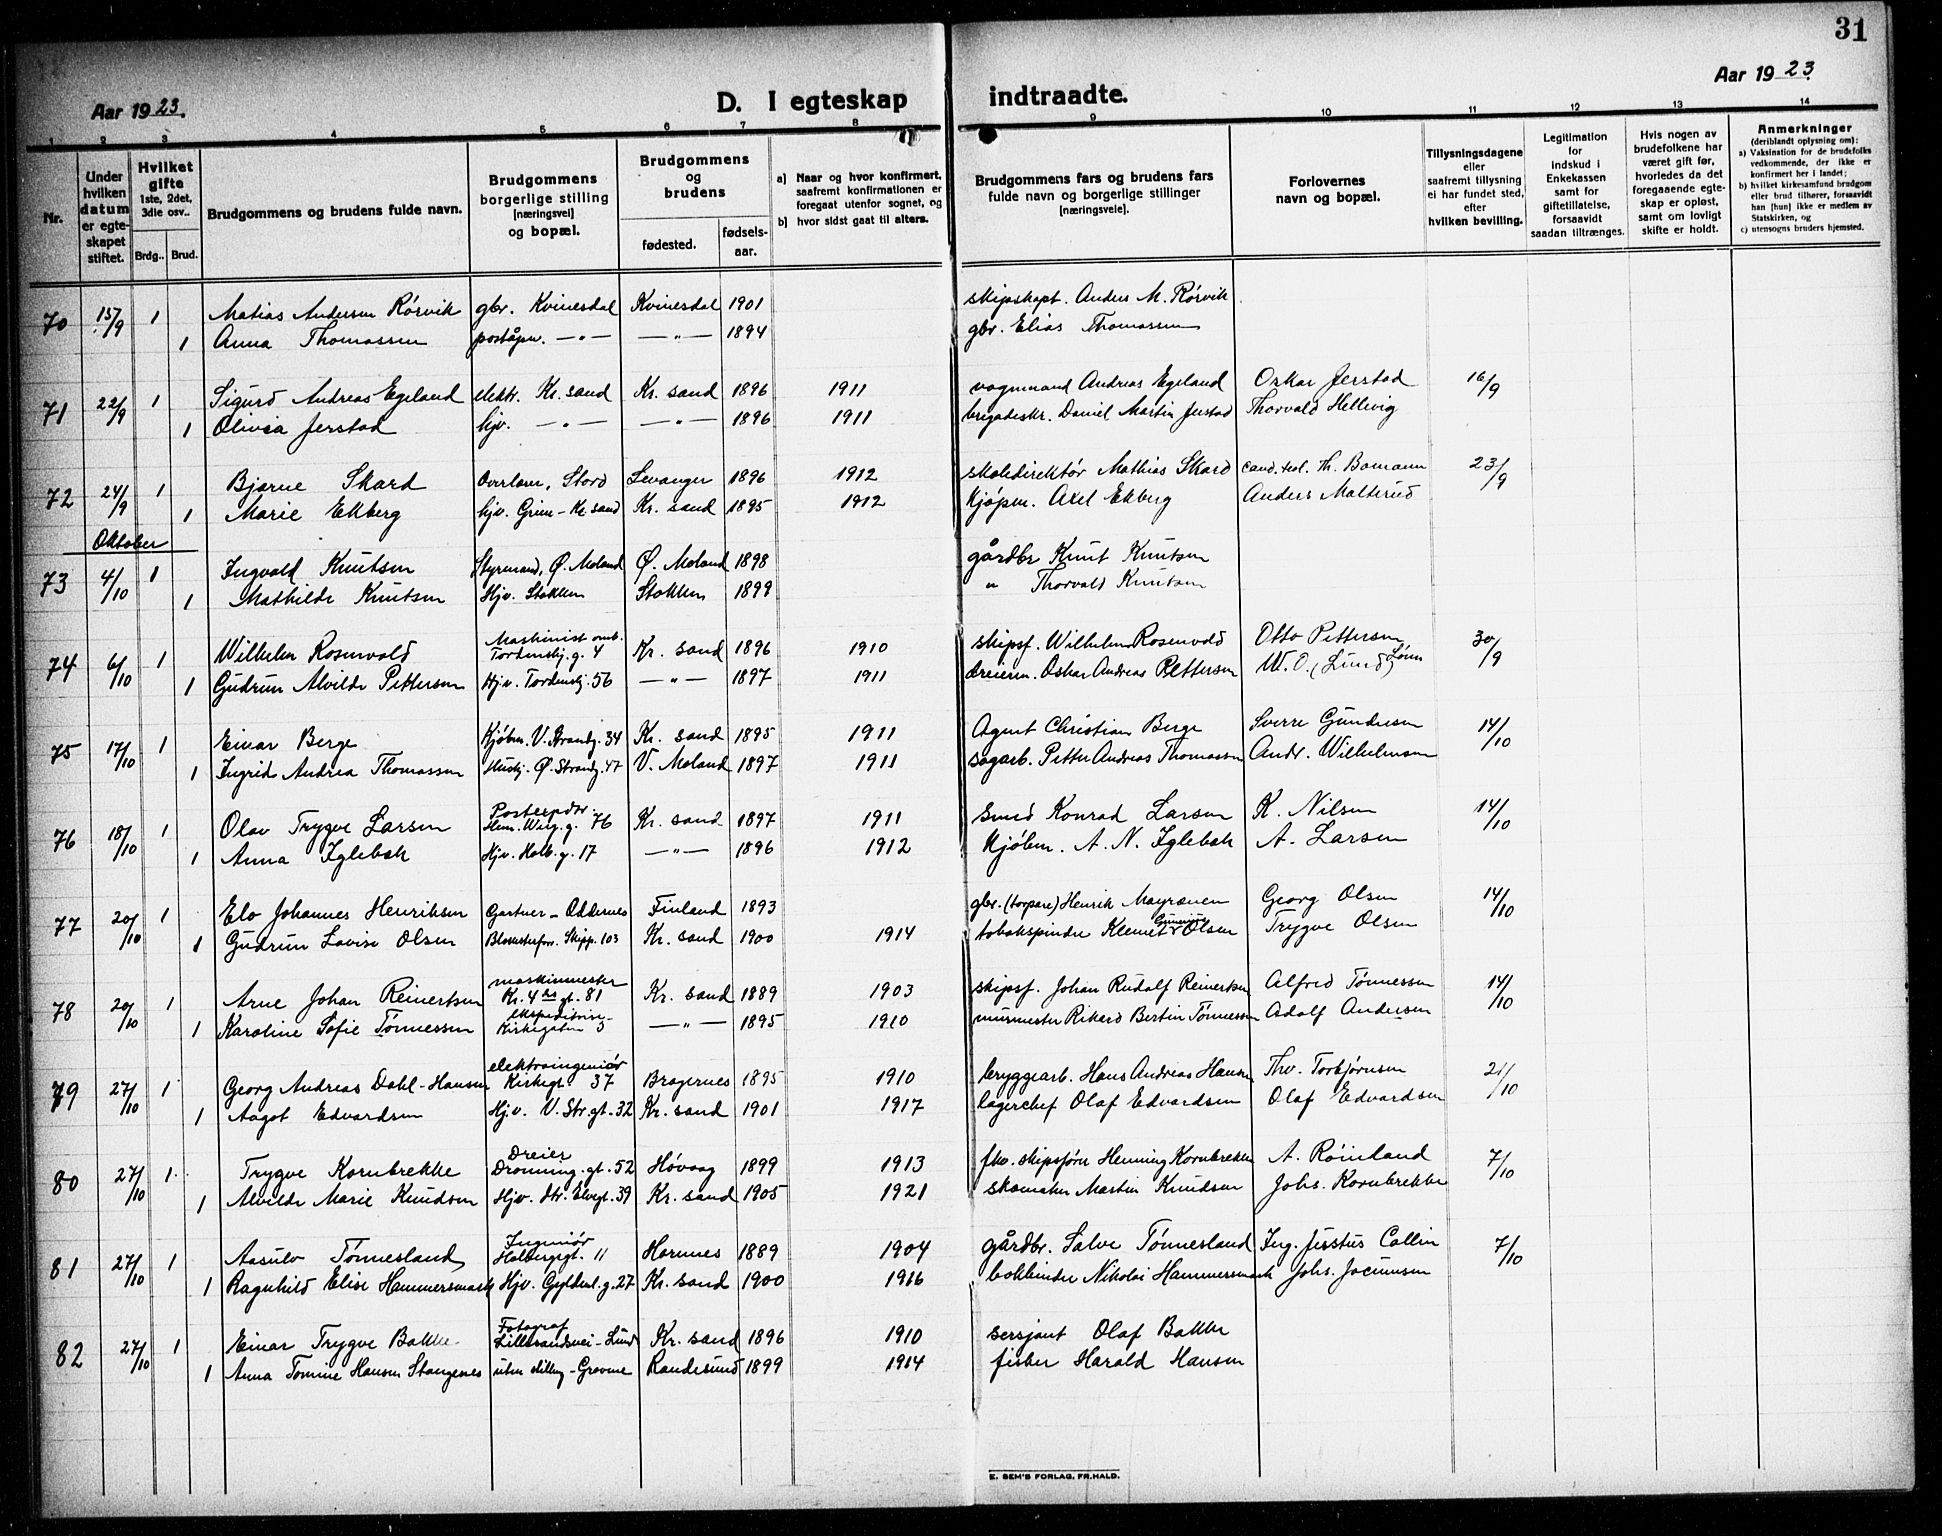 31
Aar 1923. D. I egteskap indtraadte. Aar 1923.
1 2 3 4 5 6 7 8 9 10 11 12 13 14
Nr.
Under hvilken datum er egteskapet stiftet.
Hvilket gifte 1ste, 2det, 3die osv..
Brdg.. Brud.
Brudgommens og brudens fulde navn.
Brudgommens borgerlige stilling [næringsvei] og bopæl.
Brudgommens og brudens
fødested. fødselsaar.
a) Naar og hvor konfirmert, saafremt konfirmationen er foregaat utenfor sognet, og
b) hvor sidst gaat til alters.
Brudgommens fars og brudens fars fulde navn og borgerlige stillinger [næringsveie].
Forlovernes navn og bopæl.
Tillysningsdagene eller saafremt tillysning ei har fundet sted, efter hvilken bevilling.
Legitimation for indskud i Enkekassen samt for giftetillatelse, forsaavidt saadan tiltrænges.
Hvis nogen av brudefolkene har været gift før, hvorledes da det foregaaende egteskap er opløst, samt om lovligt skifte er holdt.
Anmerkninger (deriblandt oplysning om):
a) Vaksination for de brudefolks vedkommende, der ikke er konfirmert her i landet;
b) hvilket kirkesamfund brudgom eller brud tilhører, forsaavidt han [hun] ikke er medlem av Statskirken, og
c) utensogns bruders hjemsted.
70 15/9 1 Matias Andersen Rørvik gbr. Kvinesdal Kvinesdal 1901 skipskapt. Anders M. Rørvik
1 Anna Thomassen poståpn. —"— —"— 1894 gbr. Elias Thomassen
71 22/9 1 Sigurd Andreas Egeland elektr. Kr. sand Kr. sand 1896 1911 vognmand Andreas Egeland Oskar Jerstad 16/9
1 Olivia Jerstad hjv. —"— —"— 1896 1911 brigadeskr. Daniel Martin Jerstad Thorvald Hellevig
72 24/9 1 Bjarne Skard Overlærer, Stord Levanger 1896 1912 skoledirektør Mathias Skard cand. teol. Th. Bomann 23/9
1 Marie Ekberg hjv. Grim - Kr. sand Kr. sand 1895 1912 Kjøpm. Axel Ekberg Anders Malterud
Oktober
73 4/10 1 Ingvald Knutsen Styrmand, Ø. Moland Ø. Moland 1898 gårdbr Knut Knutsen
1 Mathilde Knutsen Hjv. Stokken Stokken 1899 " Thorvald Knutsen
74 6/10 1 Wilhelm Rosenvold Maskinist omb. Tordenskj. g. 4 Kr. sand 1896 1910 skipsf. Wilhelm Rosenvold Otto Pettersen 30/9
1 Gudrun Alvilde Pettersen Hjv. Tordenskj. 56 —"— 1897 1911 dreierm. Oskar Andreas Pettersen W. O. (Lund) Lønn
75 17/10 1 Einar Berge Kjøbm. V. Strandg. 34 Kr. sand 1895 1911 Agent Christian Berge Sverre Gundersen 14/10
1 Ingrid Andrea Thomassen Hushj. Ø. Strandg. 47 V. Moland 1897 1911 sagarb. Petter Andreas Thomassen Andr. Wilhelmsen
76 18/10 1 Olav Trygve Larsen Postexpdr. Hen. Werg. g. 76 Kr. sand 1897 1911 Smed Konrad Larsen K. Nilsen 14/10
1 Anna Iglebæk Hjv. Holb. g. 17 —"— 1896 1912 Kjøbm. A. N. Iglebæk A. Larsen
77 20/10 1 Elo Johannes Henriksen Gartner - Oddernes Finland 1893 gbr. (torpare) Henrik Mayranen Georg Olsen 14/10
1 Gudrun Lovise Olsen Blomsterforr. Skipp. 103 Kr. sand 1900 1914 tobakspinder Klemet Olsen Trygve Olsen
78 20/10 1 Arne Johan Reinertsen maskinmester Kr. 4des gt. 81 Kr. sand 1889 1903 skipsf. Johan Rudolf Reinertsen Alfred Tønnessen 14/10
1 Karoline Sofie Tønnessen ekspeditrise - Kirkegaten 5 —"— 1895 1910 murmester Rikard Bertin Tønnessen Adolf Andersen
79 27/10 1 Georg Andreas Dahl-Hansen elektroingeniør Kirkegt. 37 Bragernes 1895 1910 bryggearb. Hans Andreas Hansen Thv. Torbjørnsen 21/10
1 Aagot Edvardsen Hjv. V. Str. gt. 32 Kr. sand 1901 1917 lagerchef Olaf Edvardsen Olaf Edvardsen
80 27/10 1 Trygve Kornbrekke Dreier Dronning. gt. 52 Høvaag 1899 1913 fhv. skipsfører Henning Kornbrekke A. Røinland 7/10
1 Alvilde Marie Knudsen Hjv. Str. Elvegt. 39 Kr. sand 1905 1921 skomaker Martin Knudsen Johs. Kornbrekke
81 27/10 1 Aasulv Tønnesland Ingeniør Holbergsgt. 11 Hornnes 1889 1904 gårdbr. Salve Tønnesland Ing. Justus Collin 7/10
1 Ragnhild Elise Hammersmark Hjv. Gyldenl. g. 27 Kr. sand 1900 1916 bokbinder Nikolai Hammersmark Johs. Jacumsen
82 27/10 1 Einar Trygve Bakke Fotograf Lillesandsvei - Lund Kr. sand 1896 1910 sersjant Olaf Bakke
1 Anna Tomine Hansen Stangenes uten stilling - Grovene Randesund 1899 1914 fisker Harald Hansen
E. SEM'S FORLAG, FR.HALD.